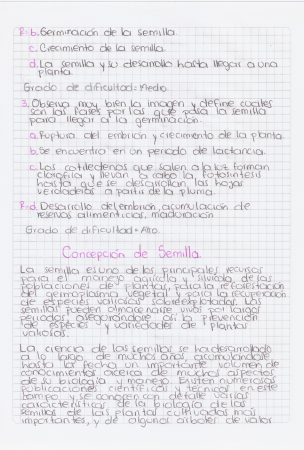 R: b. Germinación de la semilla.
c. Crecimiento de la semilla.
d. La semilla y su desarrollo hasta llegar a una
planta.
Grado de dificultad: Medio.
3. Observa muy bien la imagen y define cuales
son las fases por las que pasa la semilla
para llegar a la germinación.
a. Ruptura del embrión y crecimiento de la planta.
b. Se encuentra en un periodo de lactancia.
c. Los cotiledones que salen a la luz forman
clorofila y llevan a cabo la fotosíntesis
hasta que se desarrollan las hojas
verdaderas a partir de la pluma.
R: d. Desarrollo del embrión, acumulación de
reservas alimenticias, maduración
Grado de dificultad: Alto.
Concepción de Semilla.
La semilla es uno de los principales recursos
para el manejo agrícola y silvícola de las
poblaciones de plantas, para la reforestación
del germoplasma vegetal y para la recuperación
de especies valiosas sobreexplotadas. Las
semillas pueden almacenarse vivas por largos
periodos, asegurándose así la prevención
de especies y variedades de plantas
valiosas.
La ciencia de las semillas se ha desarrollado
a lo largo de muchos años, acumulándose
hasta la fecha un importante volumen de
conocimientos acerca de muchos aspectos
de su biología y manejo. Existen numerosas
publicaciones científicas y técnicas en este
campo y se conocen con detalle varias
características de la biología de las
semillas de las plantas cultivadas más
importantes, y de algunos árboles de valor